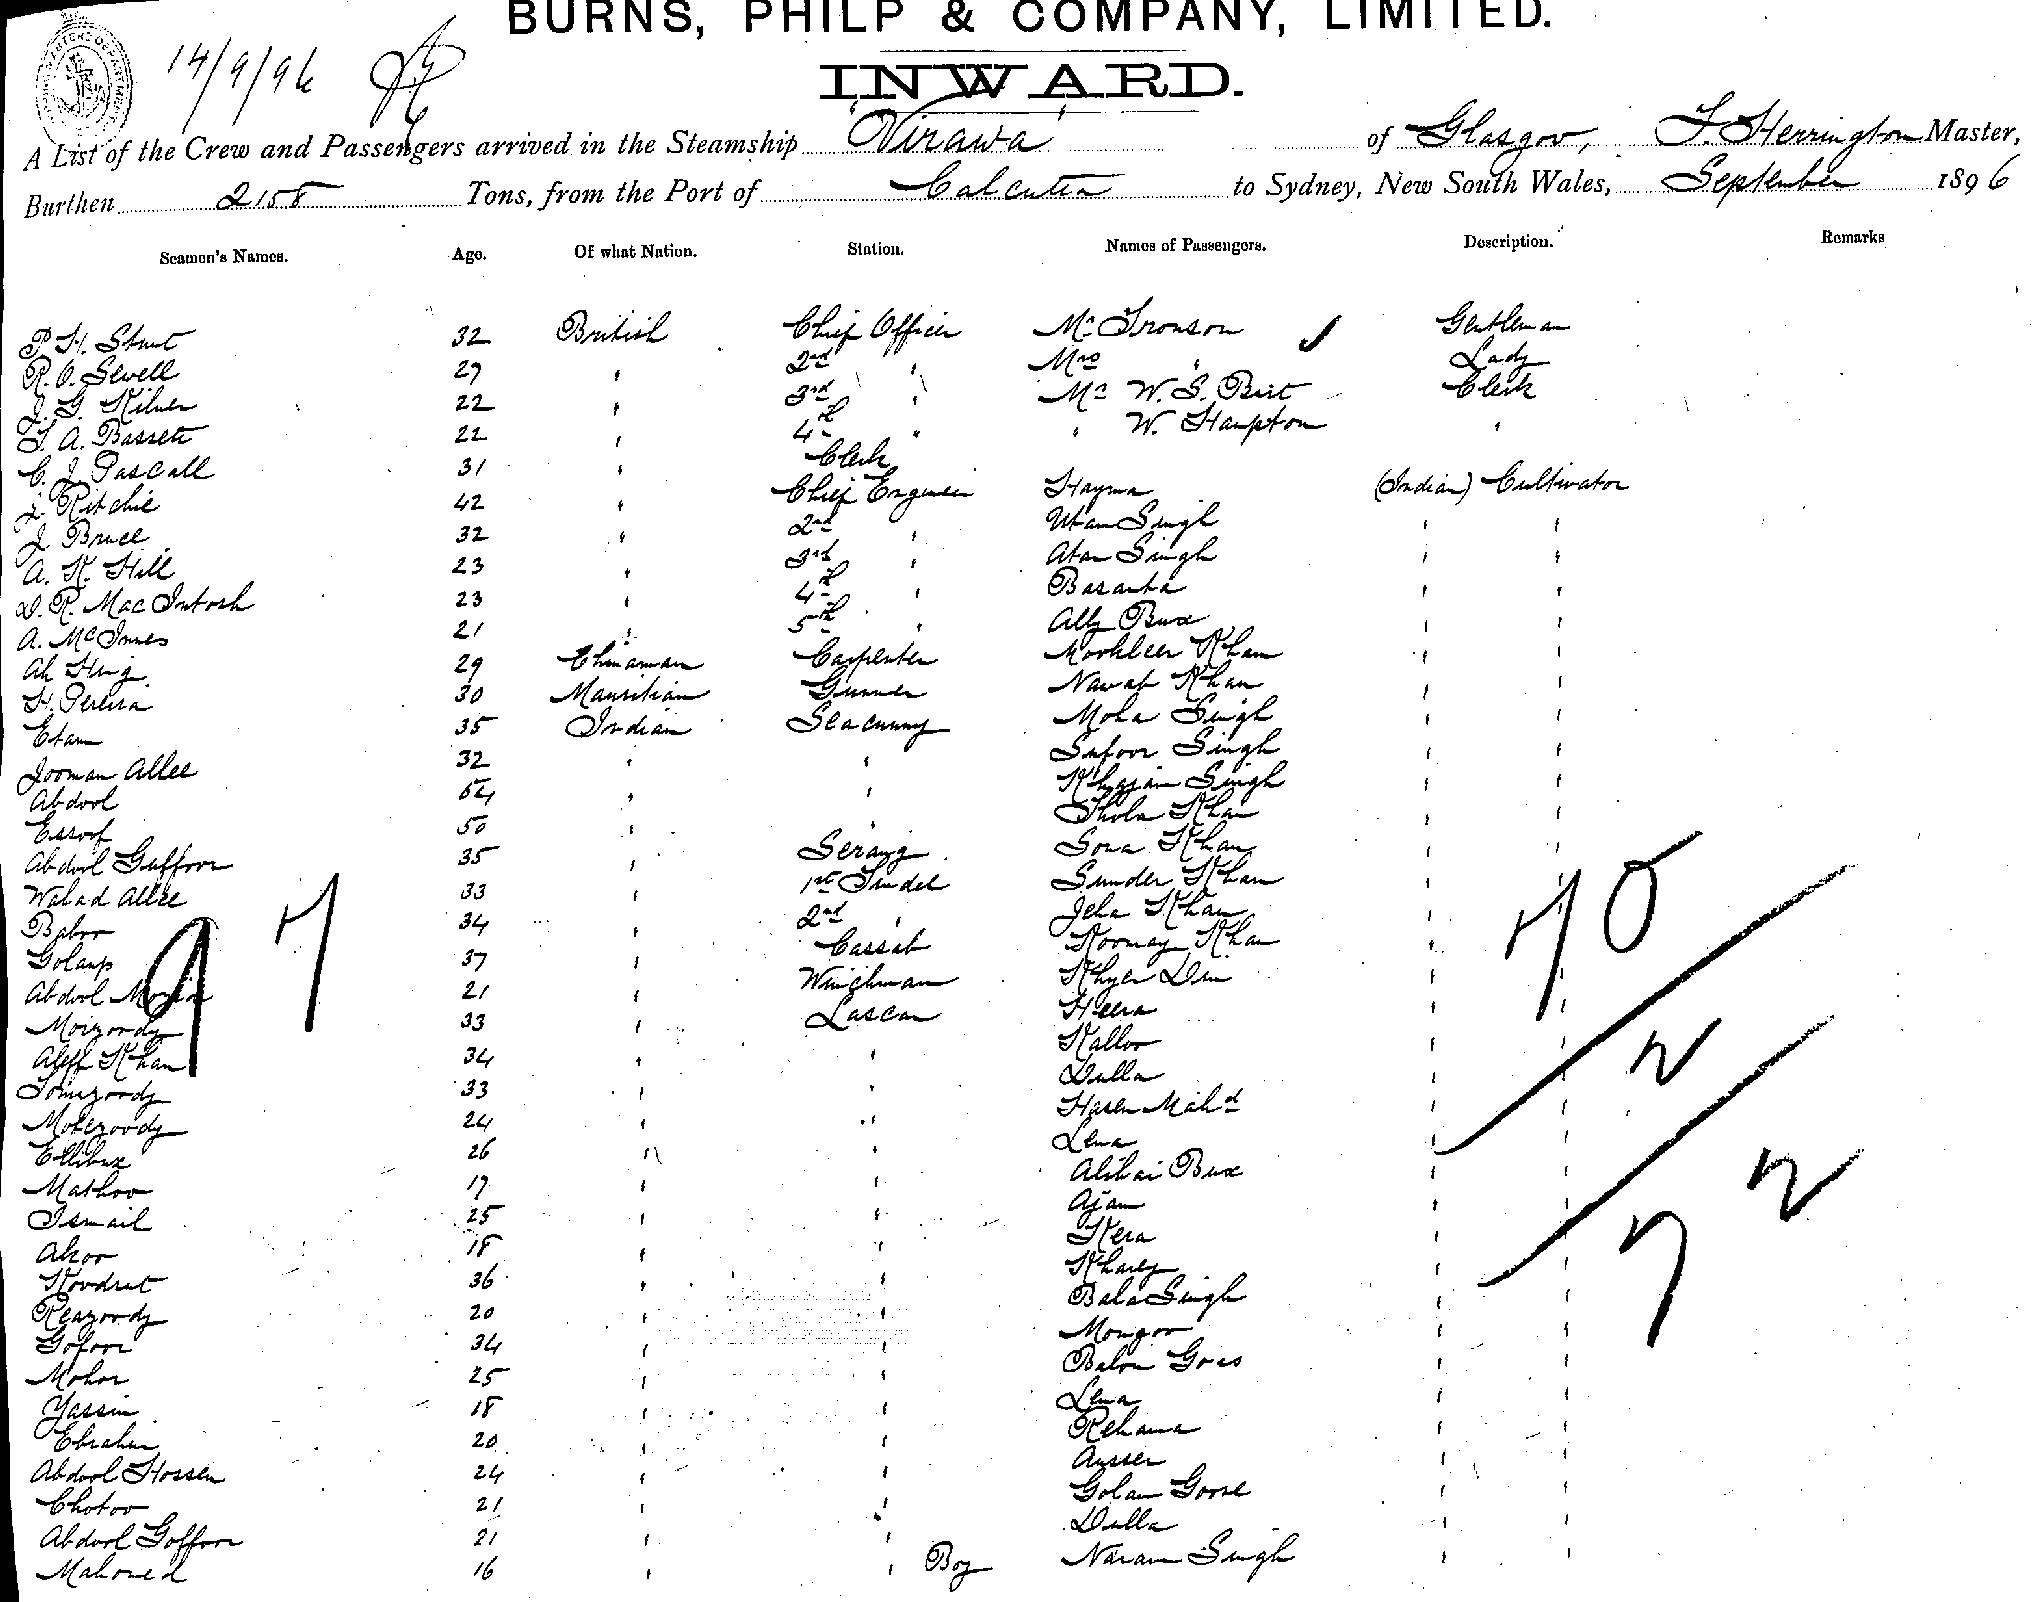 BURNS, PHILP & COMPANY, LIMITED.
14/9/96
INWARD.
A List of the Crew and Passengers arrived in the Steamship "Virawa" of Glasgow, F. Herrington Master,
Burthen 2158 Tons, from the Port of Calcutta to Sydney, New South Wales, September 1896
Seamen's Names. Age. Of what Nation. Station. Names of Passengers. Description. Remarks
P. H. Stunt 32 British Chief Officer Mr Tronson Gentleman
R. O. Sewell 29 " 2nd " Mrs " Lady
J. G. Kilner 22 " 3rd " Mr W. S. Birt Clerk
T. A. Bassett 22 " 4th " " W. Hampton "
C. J. Pascall 31 " Clerk
J. Ritchie 42 " Chief Engineer Hayma (Indian) Cultivator
J. Bruce 32 " 2nd " Utam Singh " "
A. K. Hill 23 " 3rd " Atar Singh " "
D. R. MacIntosh 23 " 4th " Basanta " "
A. McInnes 21 " 5th " Ally Bux " "
Ah Hing 29 Chinaman Carpenter Khan " "
H. Pereira 30 Mauritian Gunner Nawab Khan " "
Etam 35 Indian Seacunny Mola Singh " "
Jooman Allee 32 " " Singh " "
Abdool 54 " " Khajan Singh " "
Essoof 50 " " Khan " "
Abdool Guffoor 35 " Serang Sona Khan " "
Wahad Allee 33 " 1st Tindel Sunder Khan " "
Baboo 34 " 2nd " Jeha Khan " "
Golaup 37 " Cassab Khan " "
Abdool 21 " Winchman Khyer Din " "
Moizoody 33 " Lascar Heera " "
Aleff Khan 34 " " Kalloo " "
Tomizoody 33 " " Dulla " "
Mokezoody 24 " " Hasen Mahd " "
Ellibux 26 " " Lena " "
Mathoo 19 " " Bux " "
Ismail 25 " " Ajam " "
Akoo 18 " " Kera " "
Koodrut 36 " " " "
Reazoody 20 " " Bala Singh " "
Gofoor 34 " " Mongoo " "
Mohor 25 " " " "
Yassin 18 " " Lena " "
Ebrahim 20 " " " "
Abdool Hossen 24 " " " "
Chotoo 21 " " " "
Abdool Goffoor 21 " " Dulla " "
Mahomed 16 " " Boy Naram Singh " "
97
70
2
72